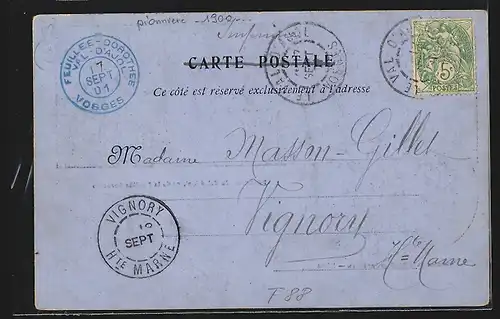 pionnière - 1900
FEUILLÉE-DOROTHÉE
VAL-D'AJOL
7
SEPT
01
VOSGES
CARTE POSTALE
Ce côté est réservé exclusivement à l'adresse
LE VAL D'AJOL
5c
POSTES
Madame Masson-Gillet
Vignory
Hte Marne
VIGNORY
SEPT
HTE MARNE
F 88